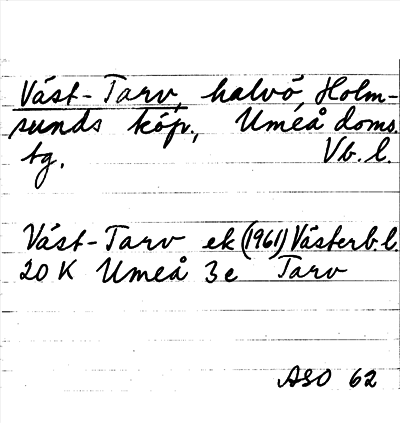 Väst-Tarv, halvö, Holm-
sunds köp., Umeå doms.
tg. Vb. l.
Väst-Tarv ek (1961) Västerb. l.
20 K Umeå 3e Tarv
ASO 62